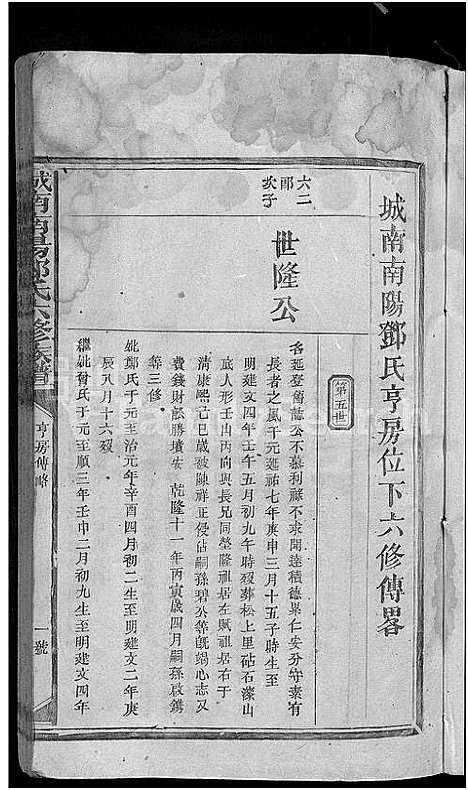 城南南陽鄧氏亨房位下六修傳畧
第五世
六二郎次子
世隆公
名延登舊誌公不慕利祿不求聞達積德累仁安分守素有
長者之風于元延祐七年庚申三月十五子時生至
明建文四年壬午五月初九午時歿葬松上里砧石漈山
底人形壬山丙向與長兄同塋隆祖居左賦祖居右于
清康熙己巳歲被陳祥正侵佔嗣孫碧公等旣竭心志又
費錢財訟勝墳安 乾隆十一年丙寅歲四月嗣孫啟鐫
等三修
妣鄭氏于元至治元年辛酉四月初二生至明建文二年庚
辰八月十六歿
繼妣曾氏于元至順三年壬申二月初九生至明建文四年
城南南陽鄧氏六修族譜
亨房傳略
一號